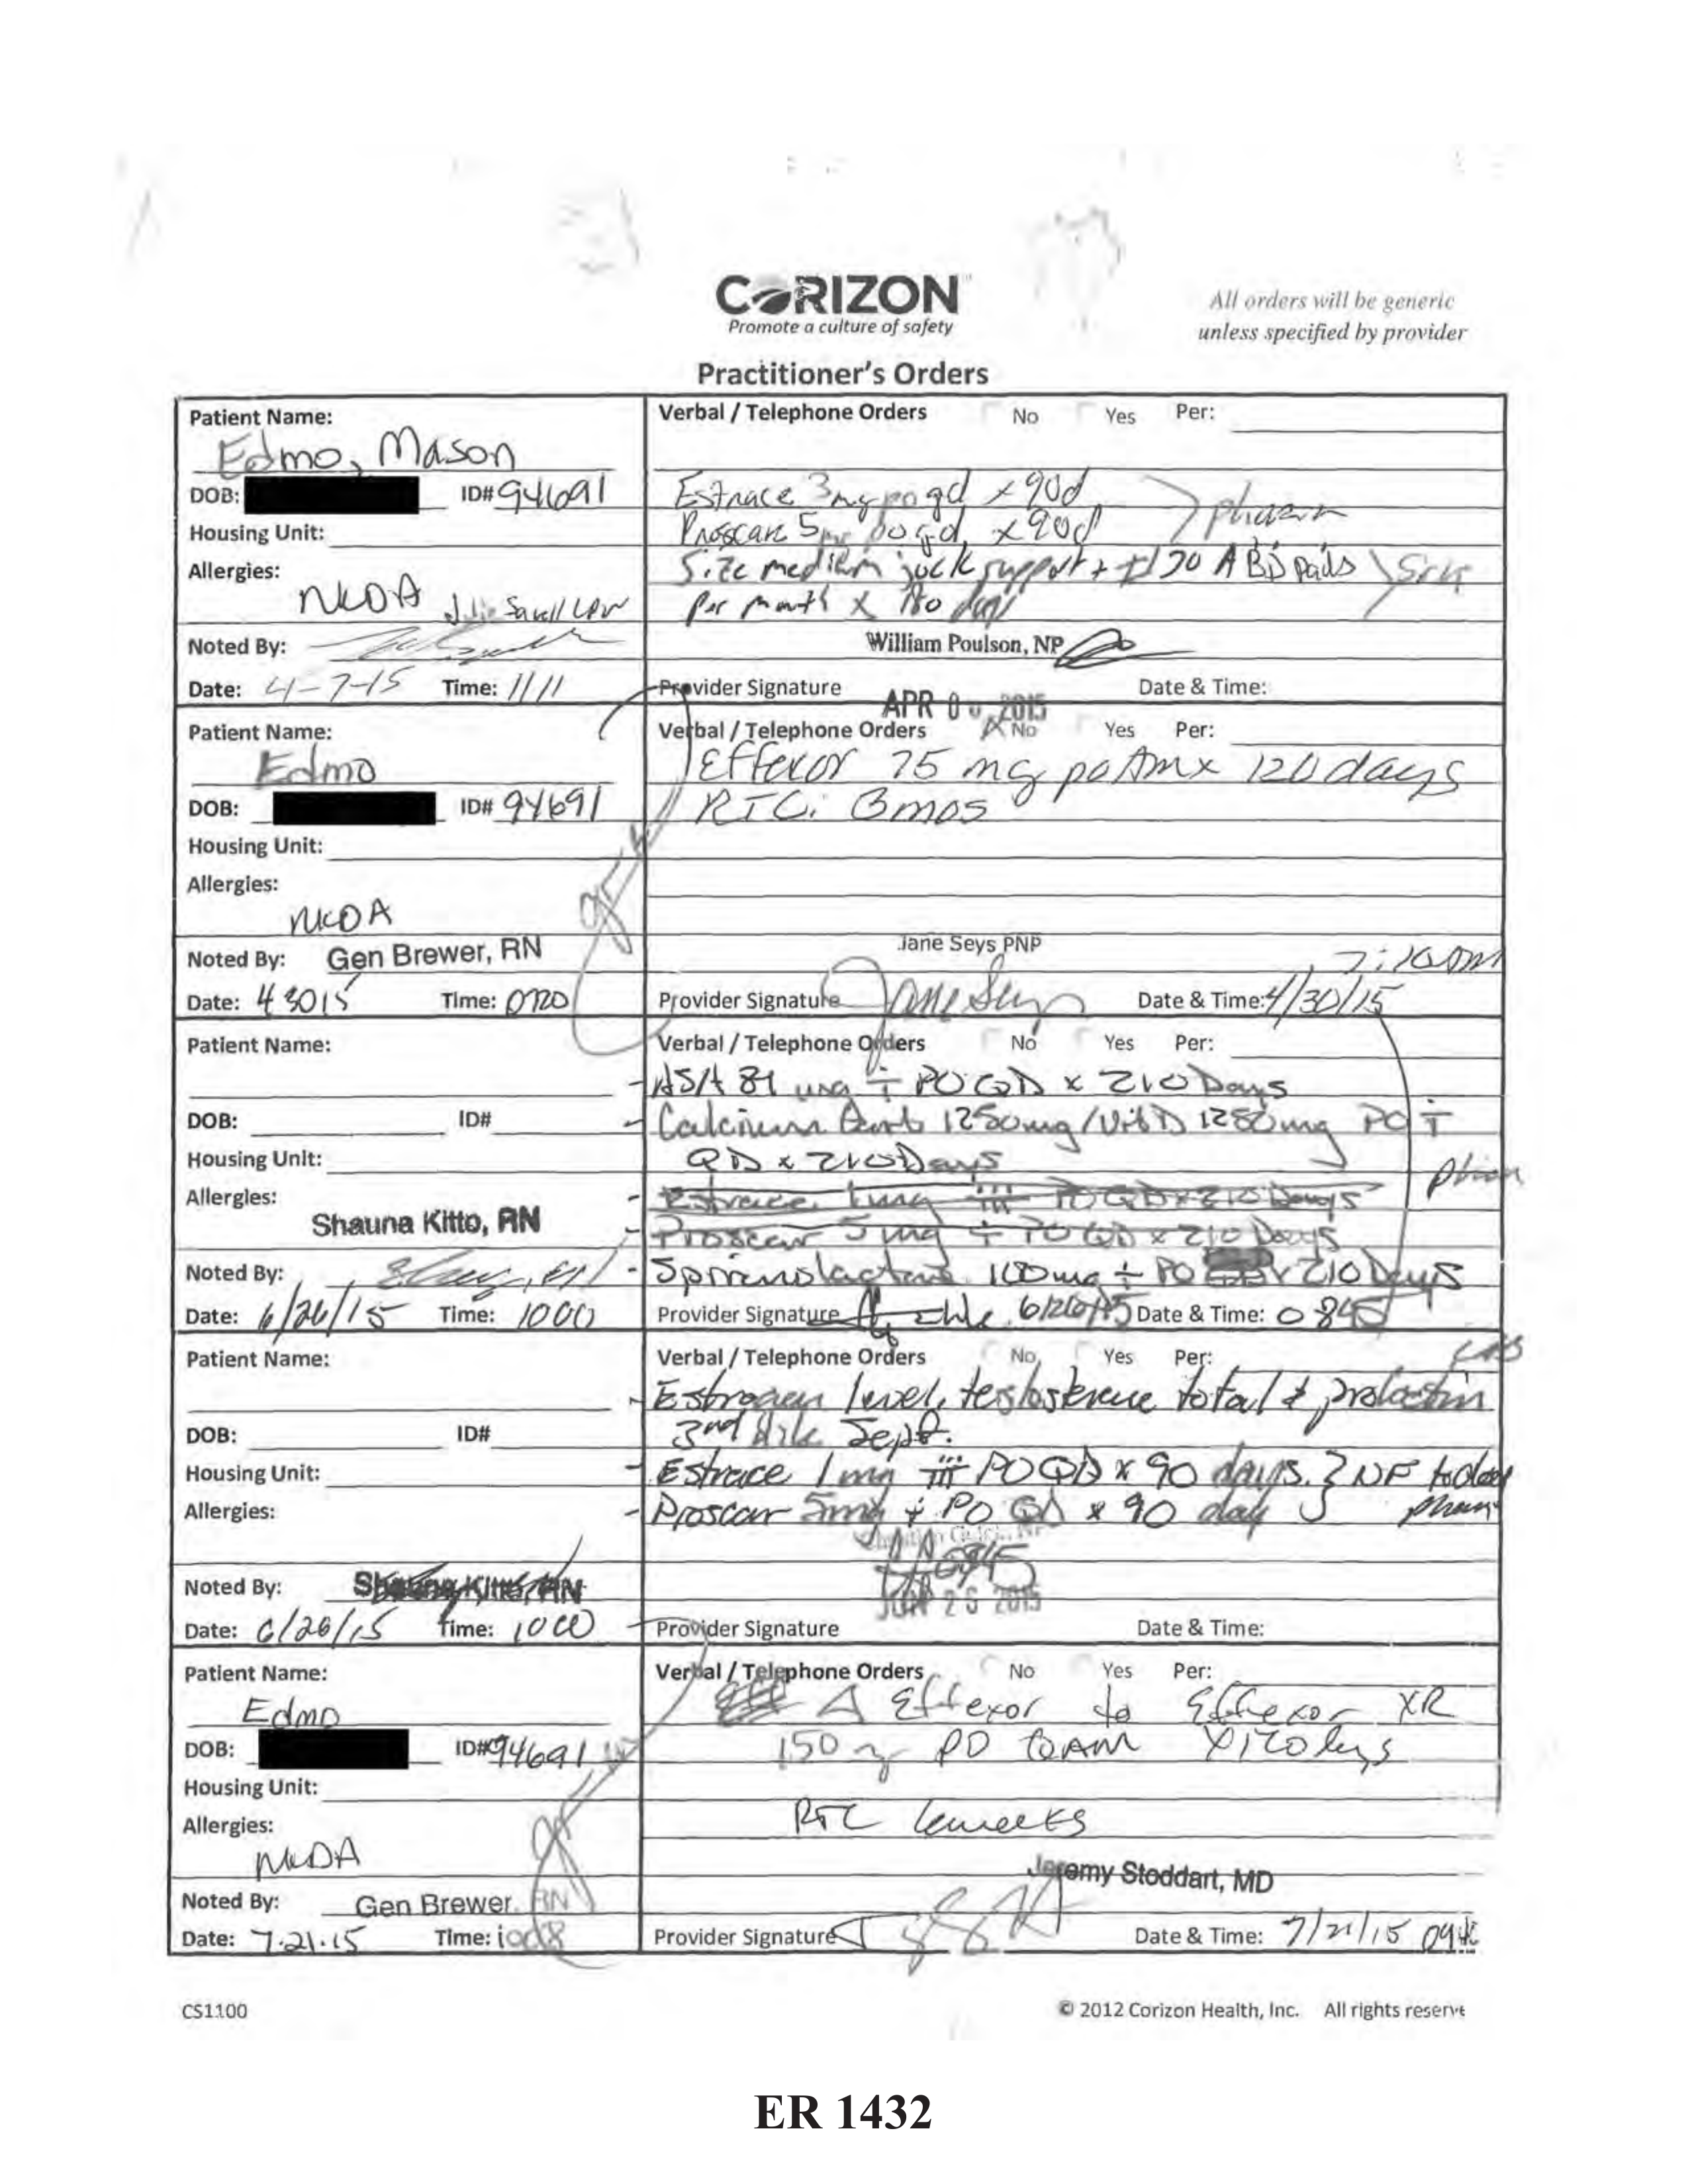 CORIZON
Promote a culture of safety
All orders will be generic
unless specified by provider
Practitioner's Orders
Patient Name:
Edmo, Mason
DOB: ID# 94691
Housing Unit:
Allergies:
NKDA Julie Savell LPN
Noted By:
Date: 4-7-15 Time: 1111
Verbal / Telephone Orders No Yes Per:
Estrace 3mg po qd x 90d
Proscar 5mg po qd x 90d > pharm
Size medium jock support + 30 ABD pads
per month x 180 days
William Poulson, NP
Provider Signature Date & Time:
APR 2015
Patient Name:
Edmo
DOB: ID# 94691
Housing Unit:
Allergies:
NKDA
Noted By: Gen Brewer, RN
Date: 4 30 15 Time: 0720
Verbal / Telephone Orders X No Yes Per:
Effexor 75 mg po Am x 120 days
RTC: 3mos
Jane Seys PNP
Provider Signature Jane Seys Date & Time: 4/30/15
Patient Name:
DOB: ID#
Housing Unit:
Allergies:
Shauna Kitto, RN
Noted By:
Date: 6/26/15 Time: 1000
Verbal / Telephone Orders No Yes Per:
- ASA 81 mg i PO QD x 210 Days
- Calcium Carb 1250mg/Vit D 1250mg PO i
QD x 210 Days
pharm
- Estrace 1mg iii PO QD x 210 Days
- Proscar 5mg i PO QD x 210 Days
- Spironolactone 100mg i PO x 210 Days
Provider Signature 6/26/15 Date & Time: 0845
Patient Name:
DOB: ID#
Housing Unit:
Allergies:
Noted By: Shauna Kitto, RN
Date: 6/26/15 Time: 1000
Verbal / Telephone Orders No Yes Per:
labs
- Estrogen level, testosterone total & prolactin
3nd Wk Sept.
- Estrace 1mg iii PO QD x 90 days. } NF today
- Proscar 5mg i PO QD x 90 day pharm
0845
JUN 26 2015
Provider Signature Date & Time:
Patient Name:
Edmo
DOB: ID# 94691
Housing Unit:
Allergies:
NKDA
Noted By: Gen Brewer, RN
Date: 7.21.15 Time: 1008
Verbal / Telephone Orders No Yes Per:
Δ Effexor to Effexor XR
150 mg PO QAM x 120 days
RTC weeks
Jeremy Stoddart, MD
Provider Signature Date & Time: 7/21/15
CS1100
© 2012 Corizon Health, Inc. All rights reserve
ER 1432